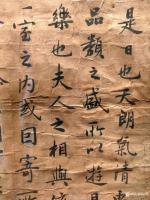 是日也天朗氣清惠
品類之盛所以遊
樂也夫人之相與俯
一室之內或因寄所